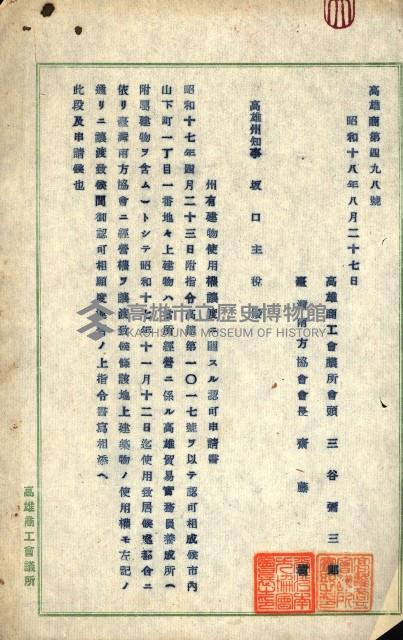 高雄商第四九八號
昭和十八年八月二十七日
高雄商工會議所會頭 三谷彌三郎
臺灣南方協會會長 齋藤
高雄州知事 坂口主稅殿
州有建物使用權讓渡ニ關スル認可申請書
昭和十七年四月二十三日附指令高雄第一〇一七號ヲ以テ認可相成候市內
山下町一丁目一番地ノ上建物ハ會所經營ニ係ル高雄貿易實務員養成所(
附屬建物ヲ含ム)トシテ昭和十七年十一月十二日迄使用致居候處都合ニ
依リ臺灣南方協會ニ經營權ヲ讓渡致候條該地上建築物ノ使用權モ左記ノ
通リニ讓渡致候間御認可相願度 ノ上指令書寫相添ヘ
此段及申請候也
高雄商工會議所
高雄市立歷史博物館
KAOHSIUNG MUSEUM OF HISTORY